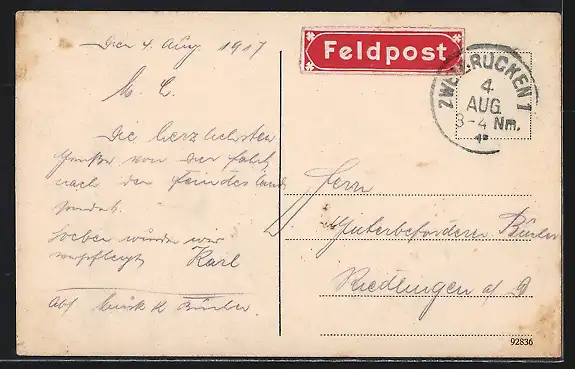 Den 4. Aug. 1917
M. L.
Die herzlichsten
Grüße von der Fahrt
nach den Feindesland
sendet.
Soeben wurden wir
verpflegt Karl
Abs.
Feldpost
ZWEIBRÜCKEN 1
4
AUG
3-4 Nm.
Herrn
Güterbeförderer
Riedlingen a/D
92836